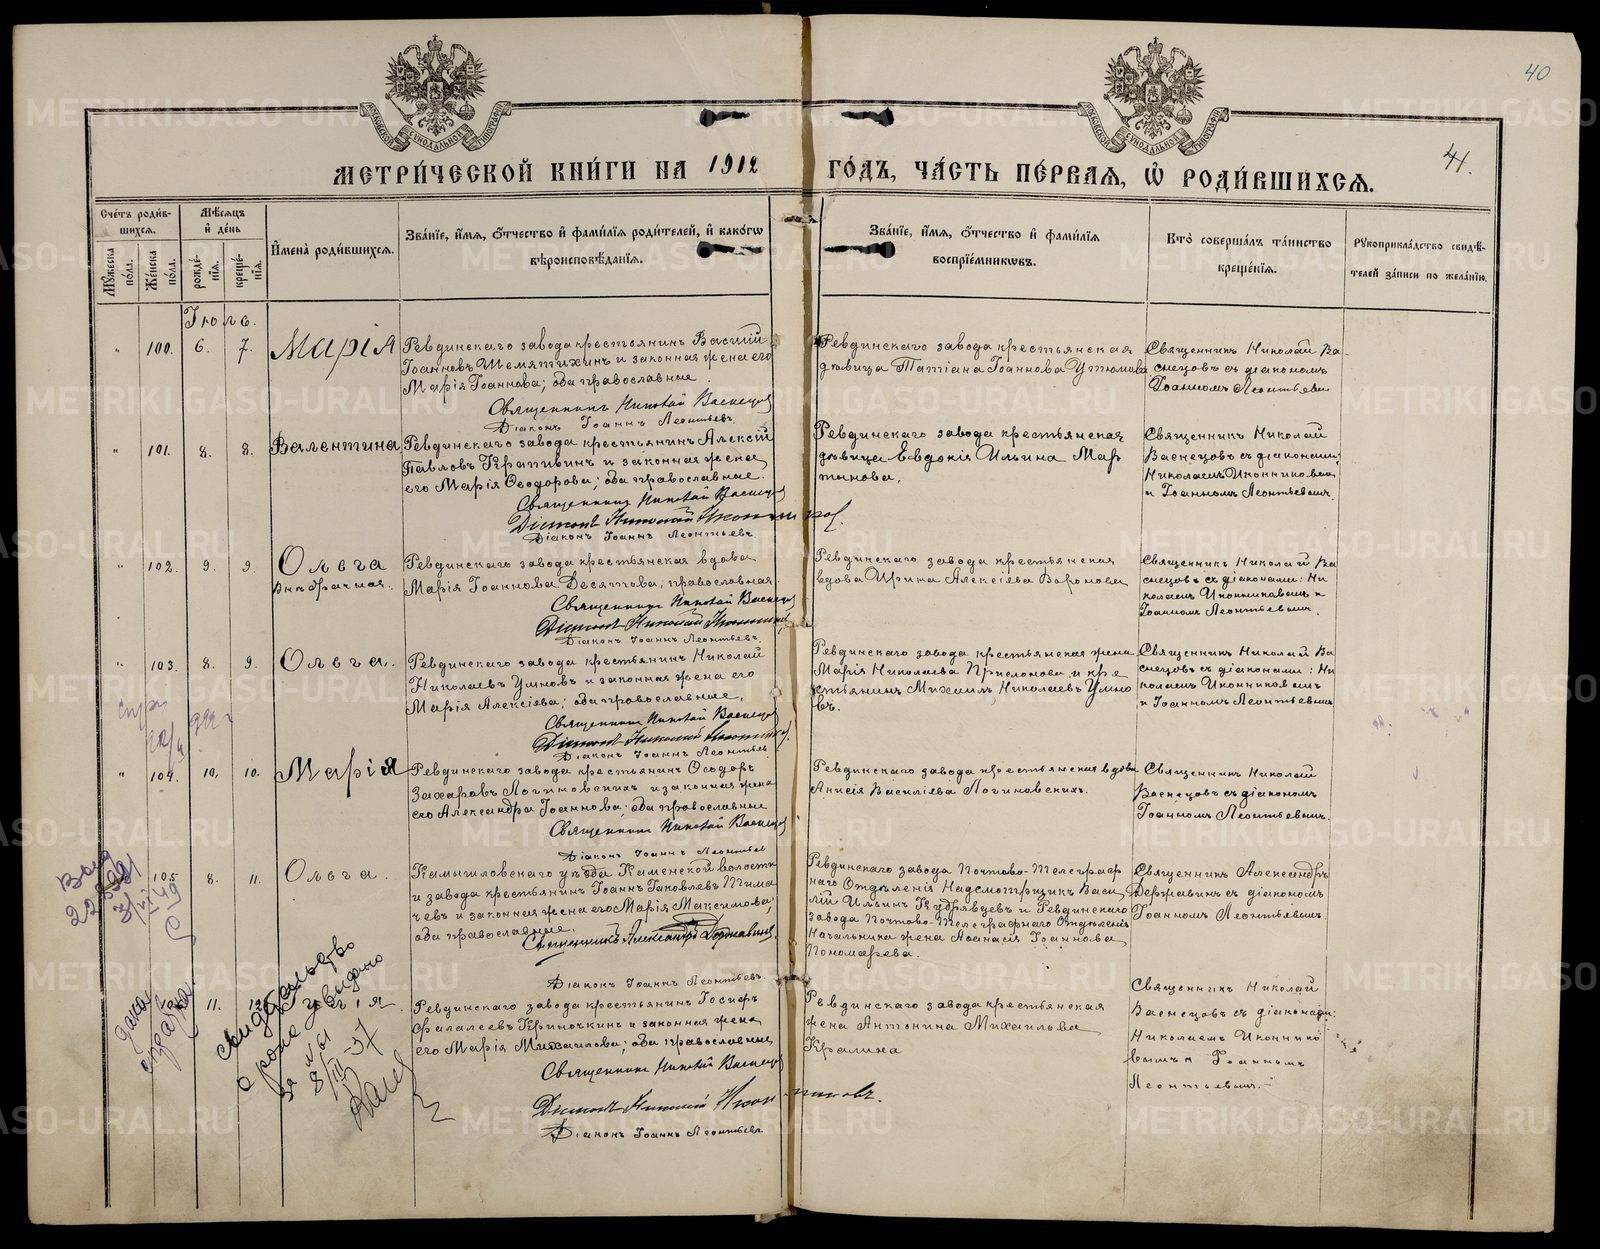 40
41.
МОСКОВСКОЙ СѴНОДАЛЬНОЙ ТИПОГРАФІИ
МОСКОВСКОЙ СѴНОДАЛЬНОЙ ТИПОГРАФІИ
МЕТРИ́ЧЕСКОЙ КНИ́ГИ НА 1912 ГО́ДЪ, ЧА́СТЬ ПЕ́РВАѦ, Ѡ҆ РОДИ́ВШИХСѦ.
Сче́тъ роди́в-
шихсѧ.
Мѣ́сѧцъ
и҆ де́нь
Мꙋ́жеска по́ла.
Же́нска по́ла.
рожде́-нїѧ.
креще́-нїѧ.
И҆мена̀ роди́вшихсѧ.
Зва́нїе, и҆́мѧ, ѻ҆́тчество и҆ фами́лїѧ роди́телей, и҆ како́гѡ
вѣроисповѣ́данїѧ.
Зва́нїе, и҆́мѧ, ѻ҆́тчество и҆ фами́лїѧ
воспрїе́мникѡвъ.
Кто̀ соверша́лъ та́инство
креще́нїѧ.
Рꙋкоприкла́дство свидѣ́-
телей за́писи по жела́нїю.
Іюль.
" 100. 6. 7. Марія
Ревдинскаго завода крестьянинъ Василій
Іоанновъ Шемятихинъ и законная жена его
Марія Іоаннова; оба православные.
Священникъ Николай Васнецовъ
Діаконъ Іоаннъ Леонтьевъ.
Ревдинскаго завода крестьянская
дѣвица Татіана Іоаннова Утюмова
Священникъ Николай Ва-
снецовъ съ діакономъ
Іоанномъ Леонтьевы
" 101. 8. 8. Валентина
Ревдинскаго завода крестьянинъ Алексій
Павловъ Крапивинъ и законная жена
его Марія Ѳеодорова; оба православные.
Священникъ Николай Васнецовъ
Діаконъ Николай Иконниковъ.
Діаконъ Іоаннъ Леонтьевъ.
Ревдинскаго завода крестьянская
дѣвица Евдокія Ильина Мар
тьянова.
Священникъ Николай
Васнецовъ съ діаконами:
Николаемъ Иконниковым
и Іоанномъ Леонтьевымъ.
" 102. 9. 9. Ольга
Внѣбрачная.
Ревдинскаго завода крестьянская вдова
Марія Іоаннова Десятова; православная.
Священникъ Николай Васнецов
Діаконъ Николай Иконников
Діаконъ Іоаннъ Леонтьевъ.
Ревдинскаго завода крестьянская
вдова Ирина Алексіева Воронова
Священникъ Николай Ва
снецовъ съ діаконами: Ни
колаемъ Иконниковымъ и
Іоанномъ Леонтьевымъ.
" 103. 8. 9. Ольга.
Ревдинскаго завода крестьянинъ Николай
Николаевъ Умновъ и законная жена его
Марія Алексіева; оба православные.
Священникъ Николай Васнецов
Діаконъ Николай Иконников.
Діаконъ Іоаннъ Леонтьев
Ревдинскаго завода крестьянская жена
Марія Николаева и кре
стьянинъ Михаилъ Николаевъ Умно
въ.
Священникъ Николай Ва
снецовъ съ діаконами: Ни
колаемъ Иконниковымъ
и Іоанномъ Леонтьевымъ
" 104. 10. 10. Марія
Ревдинскаго завода крестьянинъ Ѳеодоръ
Захаровъ Логиновскихъ и законная жена
его Александра Іоаннова; оба православные
Священникъ Николай Васнецов
Діаконъ Іоаннъ Леонтьев
Ревдинскаго завода крестьянская вдова
Анисія Василіева Логиновскихъ.
Священникъ Николай
Васнецовъ съ діакономъ
Іоанномъ Леонтьевымъ.
105 8. 11. Ольга.
Камышловскаго уѣзда Каменской волости
и завода крестьянинъ Іоаннъ Іаковлевъ Тима
чевъ и законная жена его Марія Максимова;
оба православные.
Священникъ Александръ Державинъ.
Діаконъ Іоаннъ Леонтьевъ.
Ревдинскаго завода Почтово-Телеграф
наго Отдѣленія Надсмотрщикъ Васи
лій Ильинъ Кудрявцевъ и Ревдинскаго
завода Почтово-Телеграфнаго Отдѣленія
Начальника жена Аѳанасія Іоаннова
Пономарева.
Священникъ Александръ
Державинъ съ діакономъ
Іоанномъ Леонтьевымъ.
11. 12
Ревдинскаго завода крестьянинъ Іосифъ
Фалалеевъ Криночкинъ и законная жена
его Марія Михаилова; оба православные
Священникъ Николай Васнецов
Діаконъ Николай Иконниковъ.
Діаконъ Іоаннъ Леонтьевъ.
Ревдинскаго завода крестьянская
жена Антонина Михаильва
Кралина
Священникъ Николай
Васнецовъ съ діаконами:
Николаемъ Иконнико
вымъ и Іоанномъ
Леонтьевымъ.
свидѣтельство
о рожд. выдано
за №
8/III-37